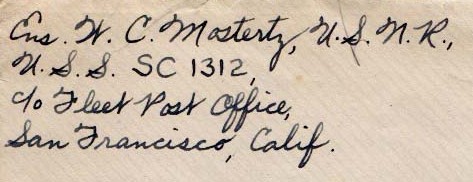 Ens. W. C. Mostertz, U.S.N.R.,
U.S.S. SC 1312,
c/o Fleet Post Office,
San Francisco, Calif.